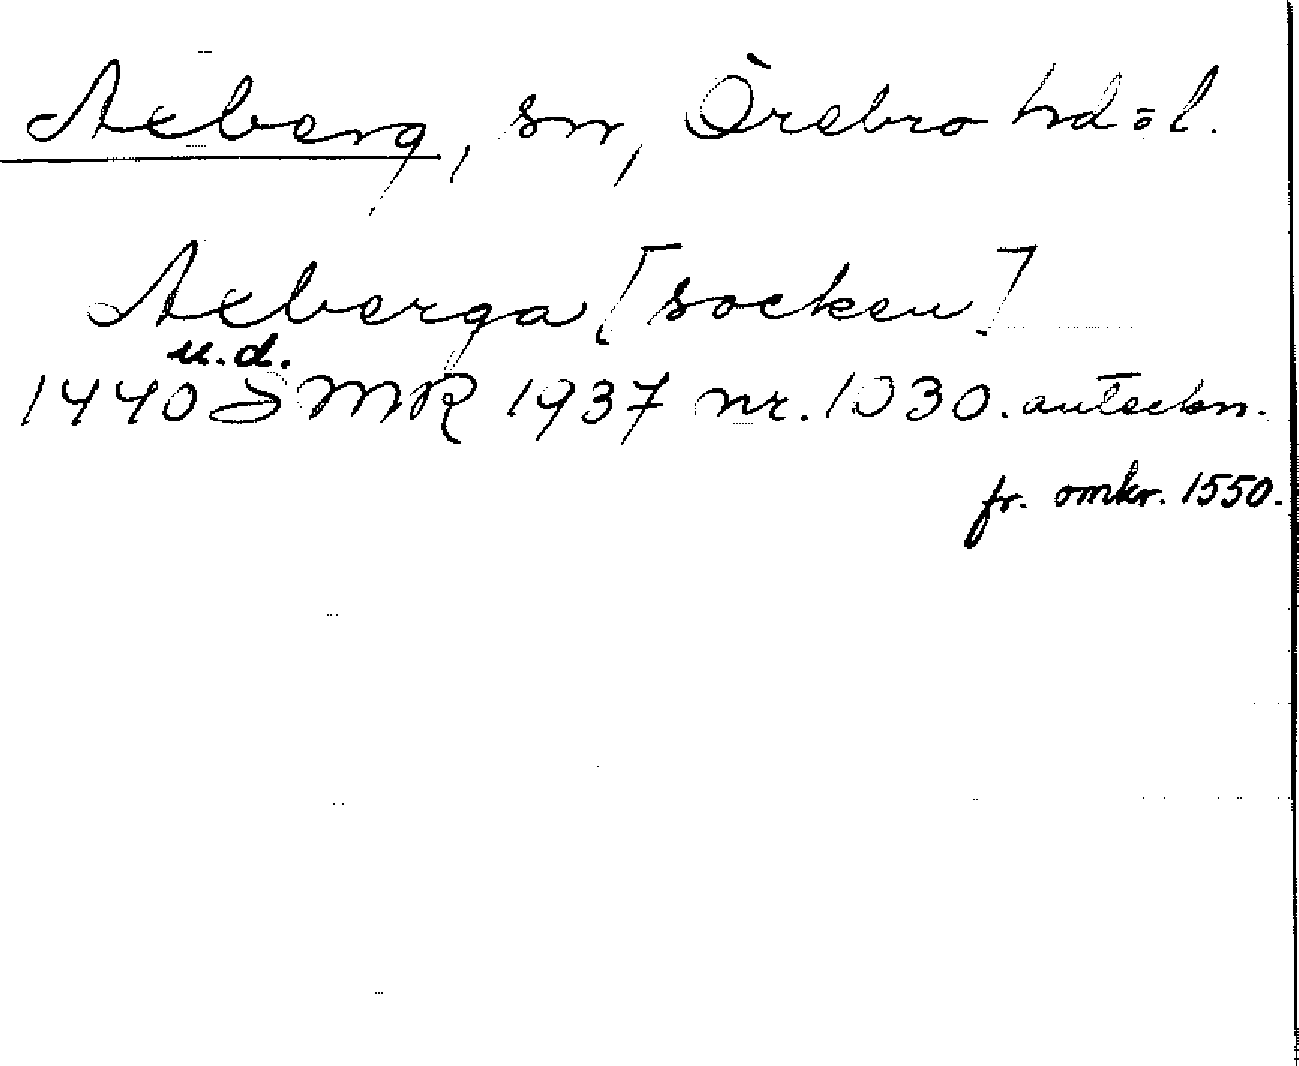 Axberg, sn, Örebro hd o l.
Axberga [socken]
u.d.
1440 SMR 1937 nr. 1030. anteckn.
fr. omkr. 1550.